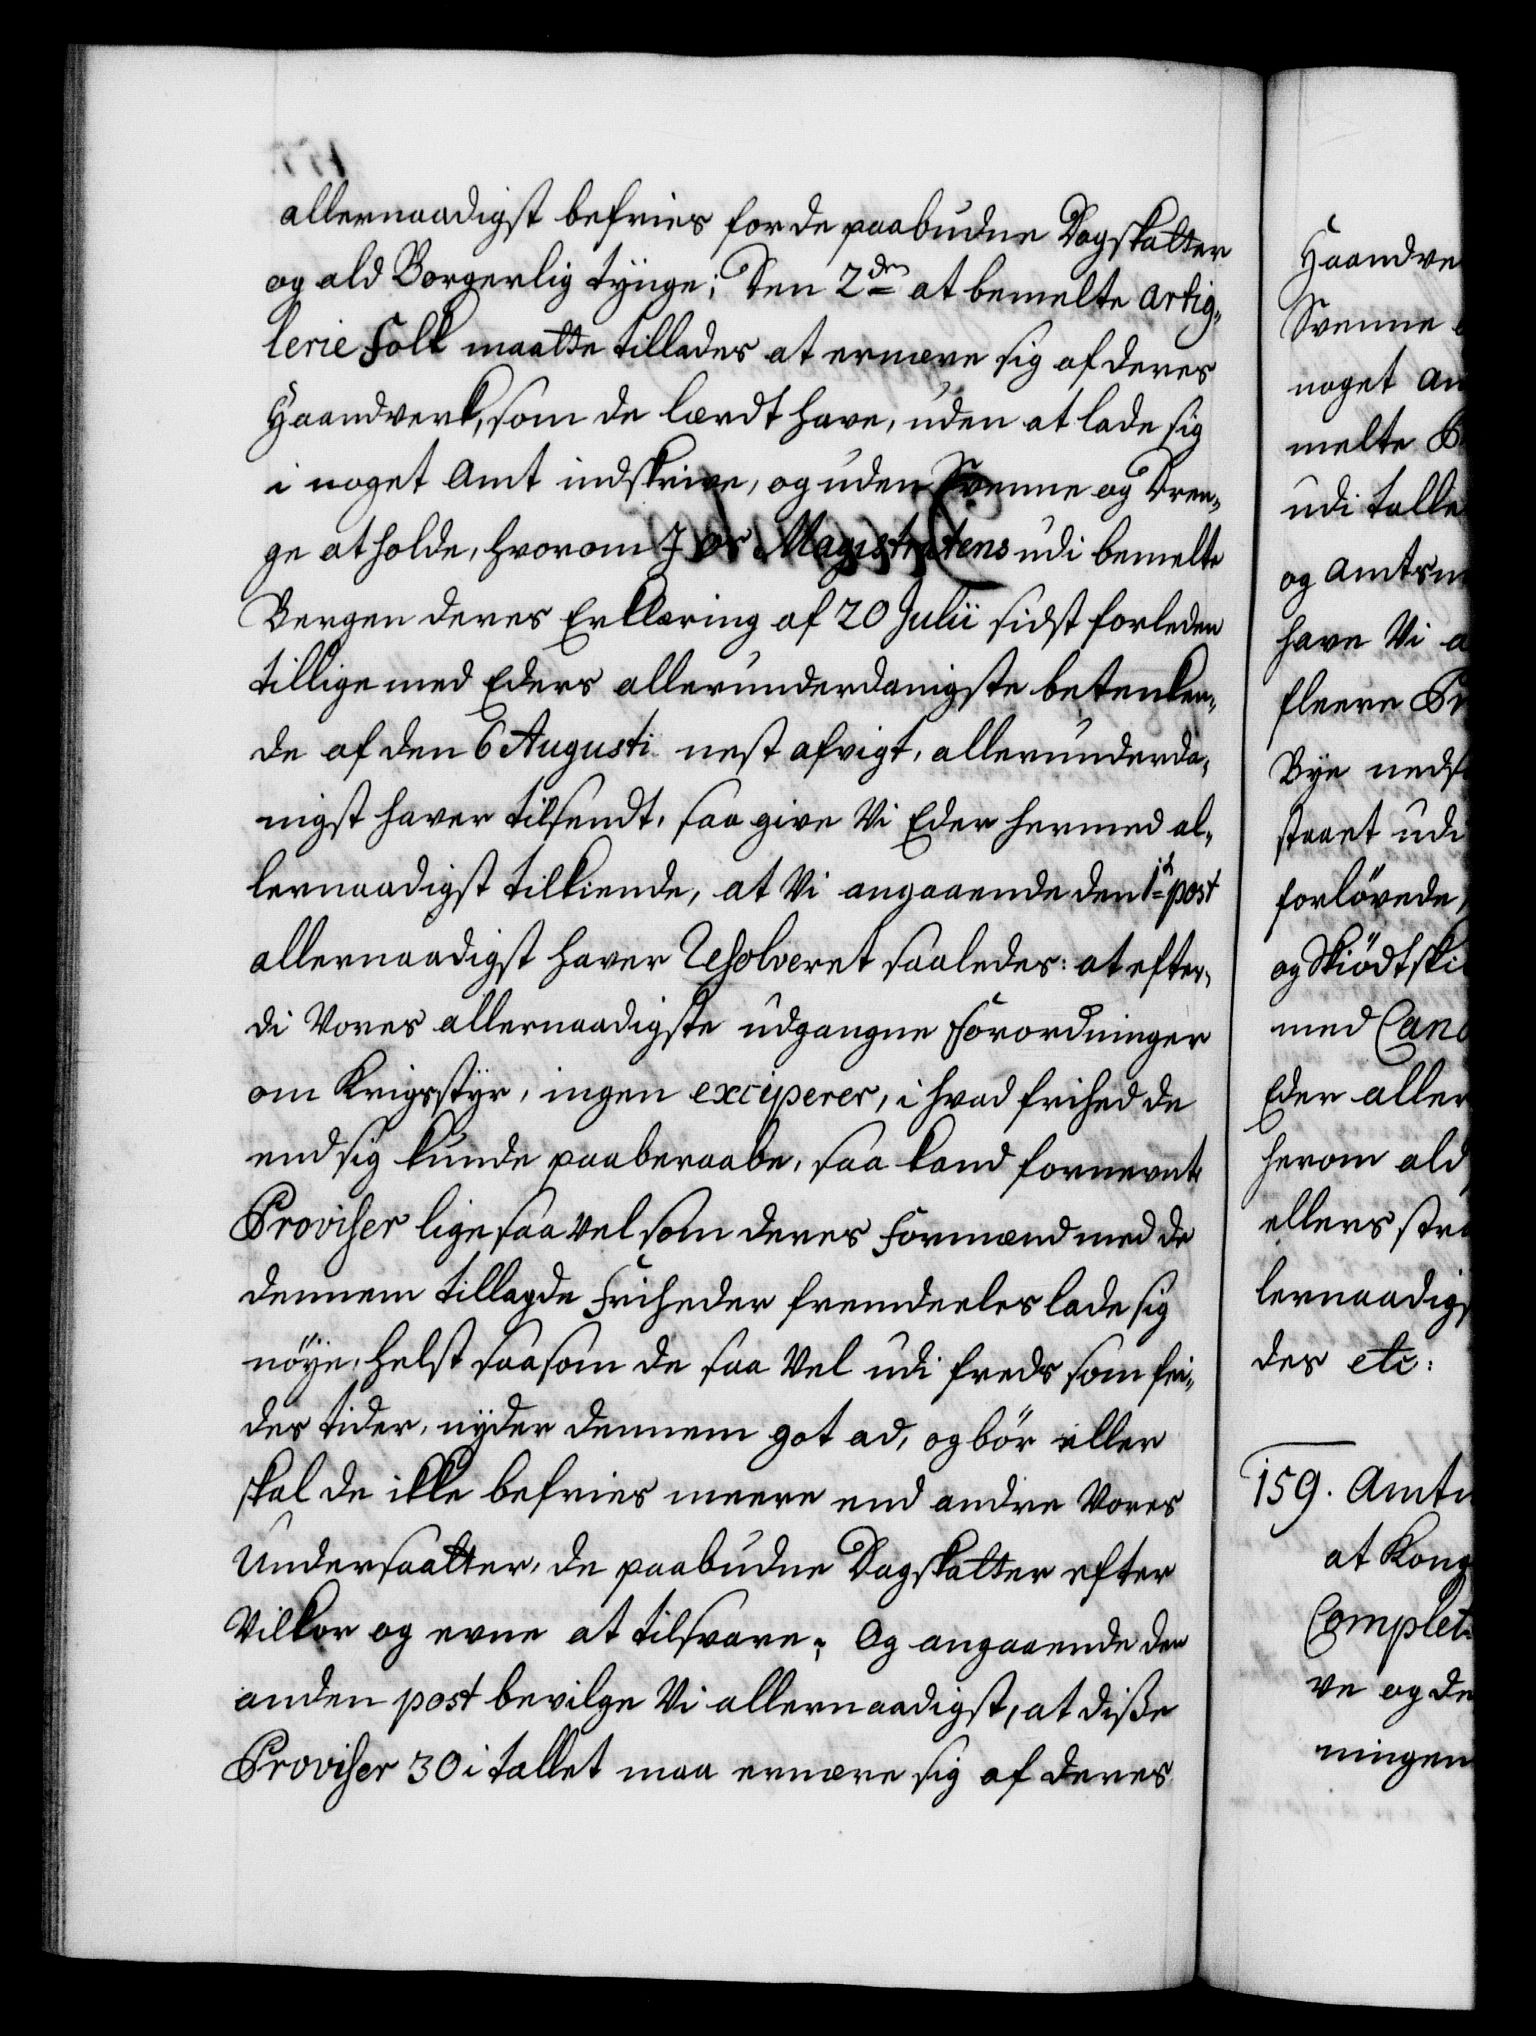 allernaadigst befries for de paabudne Dagskatter
og ald Borgerlig tÿnge; Den 2den at bemelte artig„
lerie folk maatte tillades at ernære sig af deres
Haandverk, som de lærdt have, uden at lade sig
i noget Amt indskrive, og uden Svenne og Dren„
ge at holde, hvorom I os Magistratens udi bemelte
Bergen deres Erklæring af 20 Julii sidst forleden
tillige med Eders allerunderdanigste betenken„
de af den 6 Augusti nest afvigt, allerunderda„
nigst haver tilsendt, saa give Vi Eder hermed al„
lernaadigst tilkiende, at Vi angaaende den 1ste post
allernaadigst haver Resolveret saaledes: at efter„
di Vores allernaadigste udgangne Forordninger
om Krigsstÿr, ingen exciperer, i hvad frihed de
end sig kunde paaberaabe, saa kand fornevnte
Proviser lige saa vel som deres Formænd med de
dennem tillagde Friheder fremdeeles lade sig
nöÿe, helst saasom de saa Vel udi freds som fei„
des tider, nÿder dennem got ad, og bör eller
skal de ikke befries meere end andre Vores
Undersaatter, de paabudne Dagskatter efter
Vilkor og evne at tilsvare; Og angaaende den
anden post bevilge Vi allernaadigst, at diße
Proviser 30 i tallet maa ernære sig af deres

Haandve
Svenne
noget Am
melte
udi talle
og Amtsm
have Vi a
fleere Pr
Bÿe neds
staaet udi
forlövede,
og Skiödtski
med Cano
Eder aller
herom ald
ellers stra
lernaadigs
des etc:
159. Amtm
at Kong
Complet
ve og de
ningen